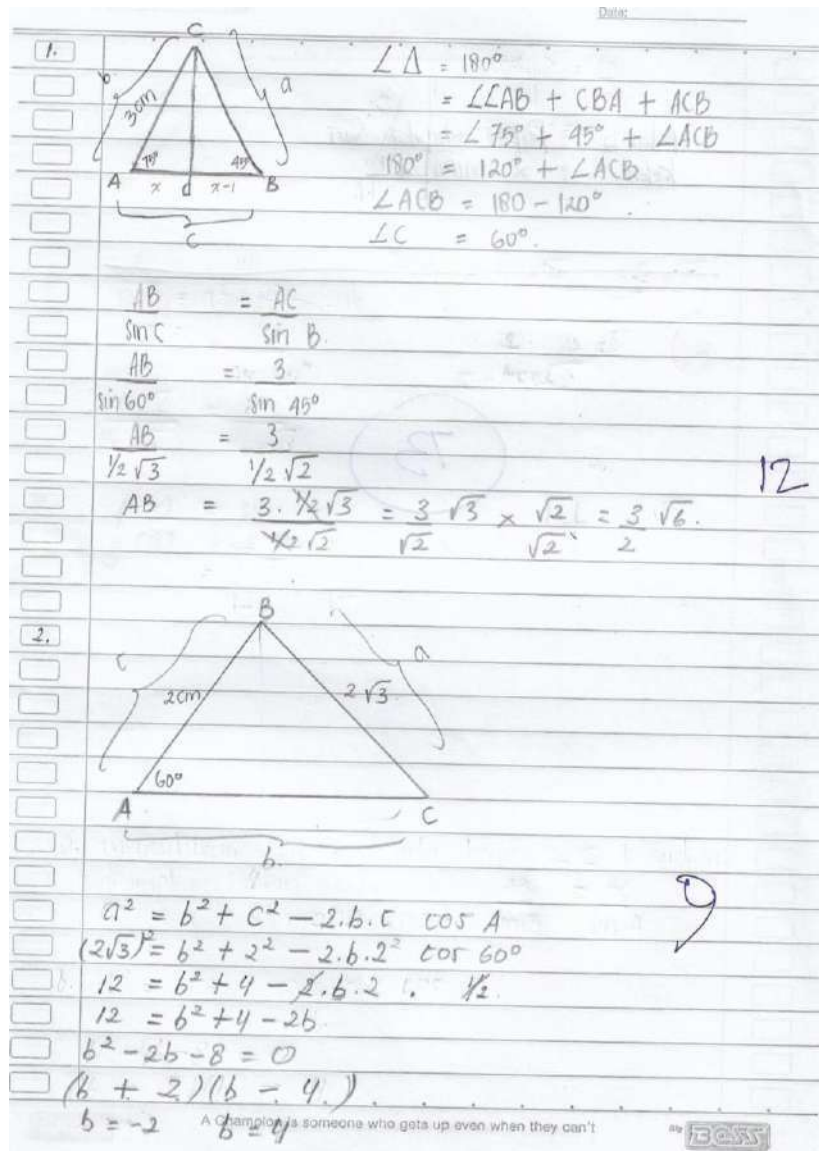 Date:
1.
C
b
3cm
a
75°
45°
A
x
d
x-1
B
C
∠Δ = 180°
= ∠∠AB + CBA + ACB
= ∠ 75° + 45° + ∠ACB
180° = 120° + ∠ACB
∠ACB = 180 - 120°
∠C = 60°.
AB/sin C = AC/sin B.
AB/sin 60° = 3/sin 45°
AB/½√3 = 3/½√2
12
AB = 3.½√3/½√2 = 3/√2 √3 × √2/√2 = 3/2 √6.
2.
B
c
a
2cm
2√3
60°
A
C
b.
9
a² = b² + c² - 2.b.c cos A
(2√3)² = b² + 2² - 2.b.2² cos 60°
12 = b² + 4 - 2.b.2 . ½
12 = b² + 4 - 2b
b² - 2b - 8 = 0
(b + 2)(b - 4)
b = -2 b = 4
A Champion is someone who gets up even when they can't
BOSS